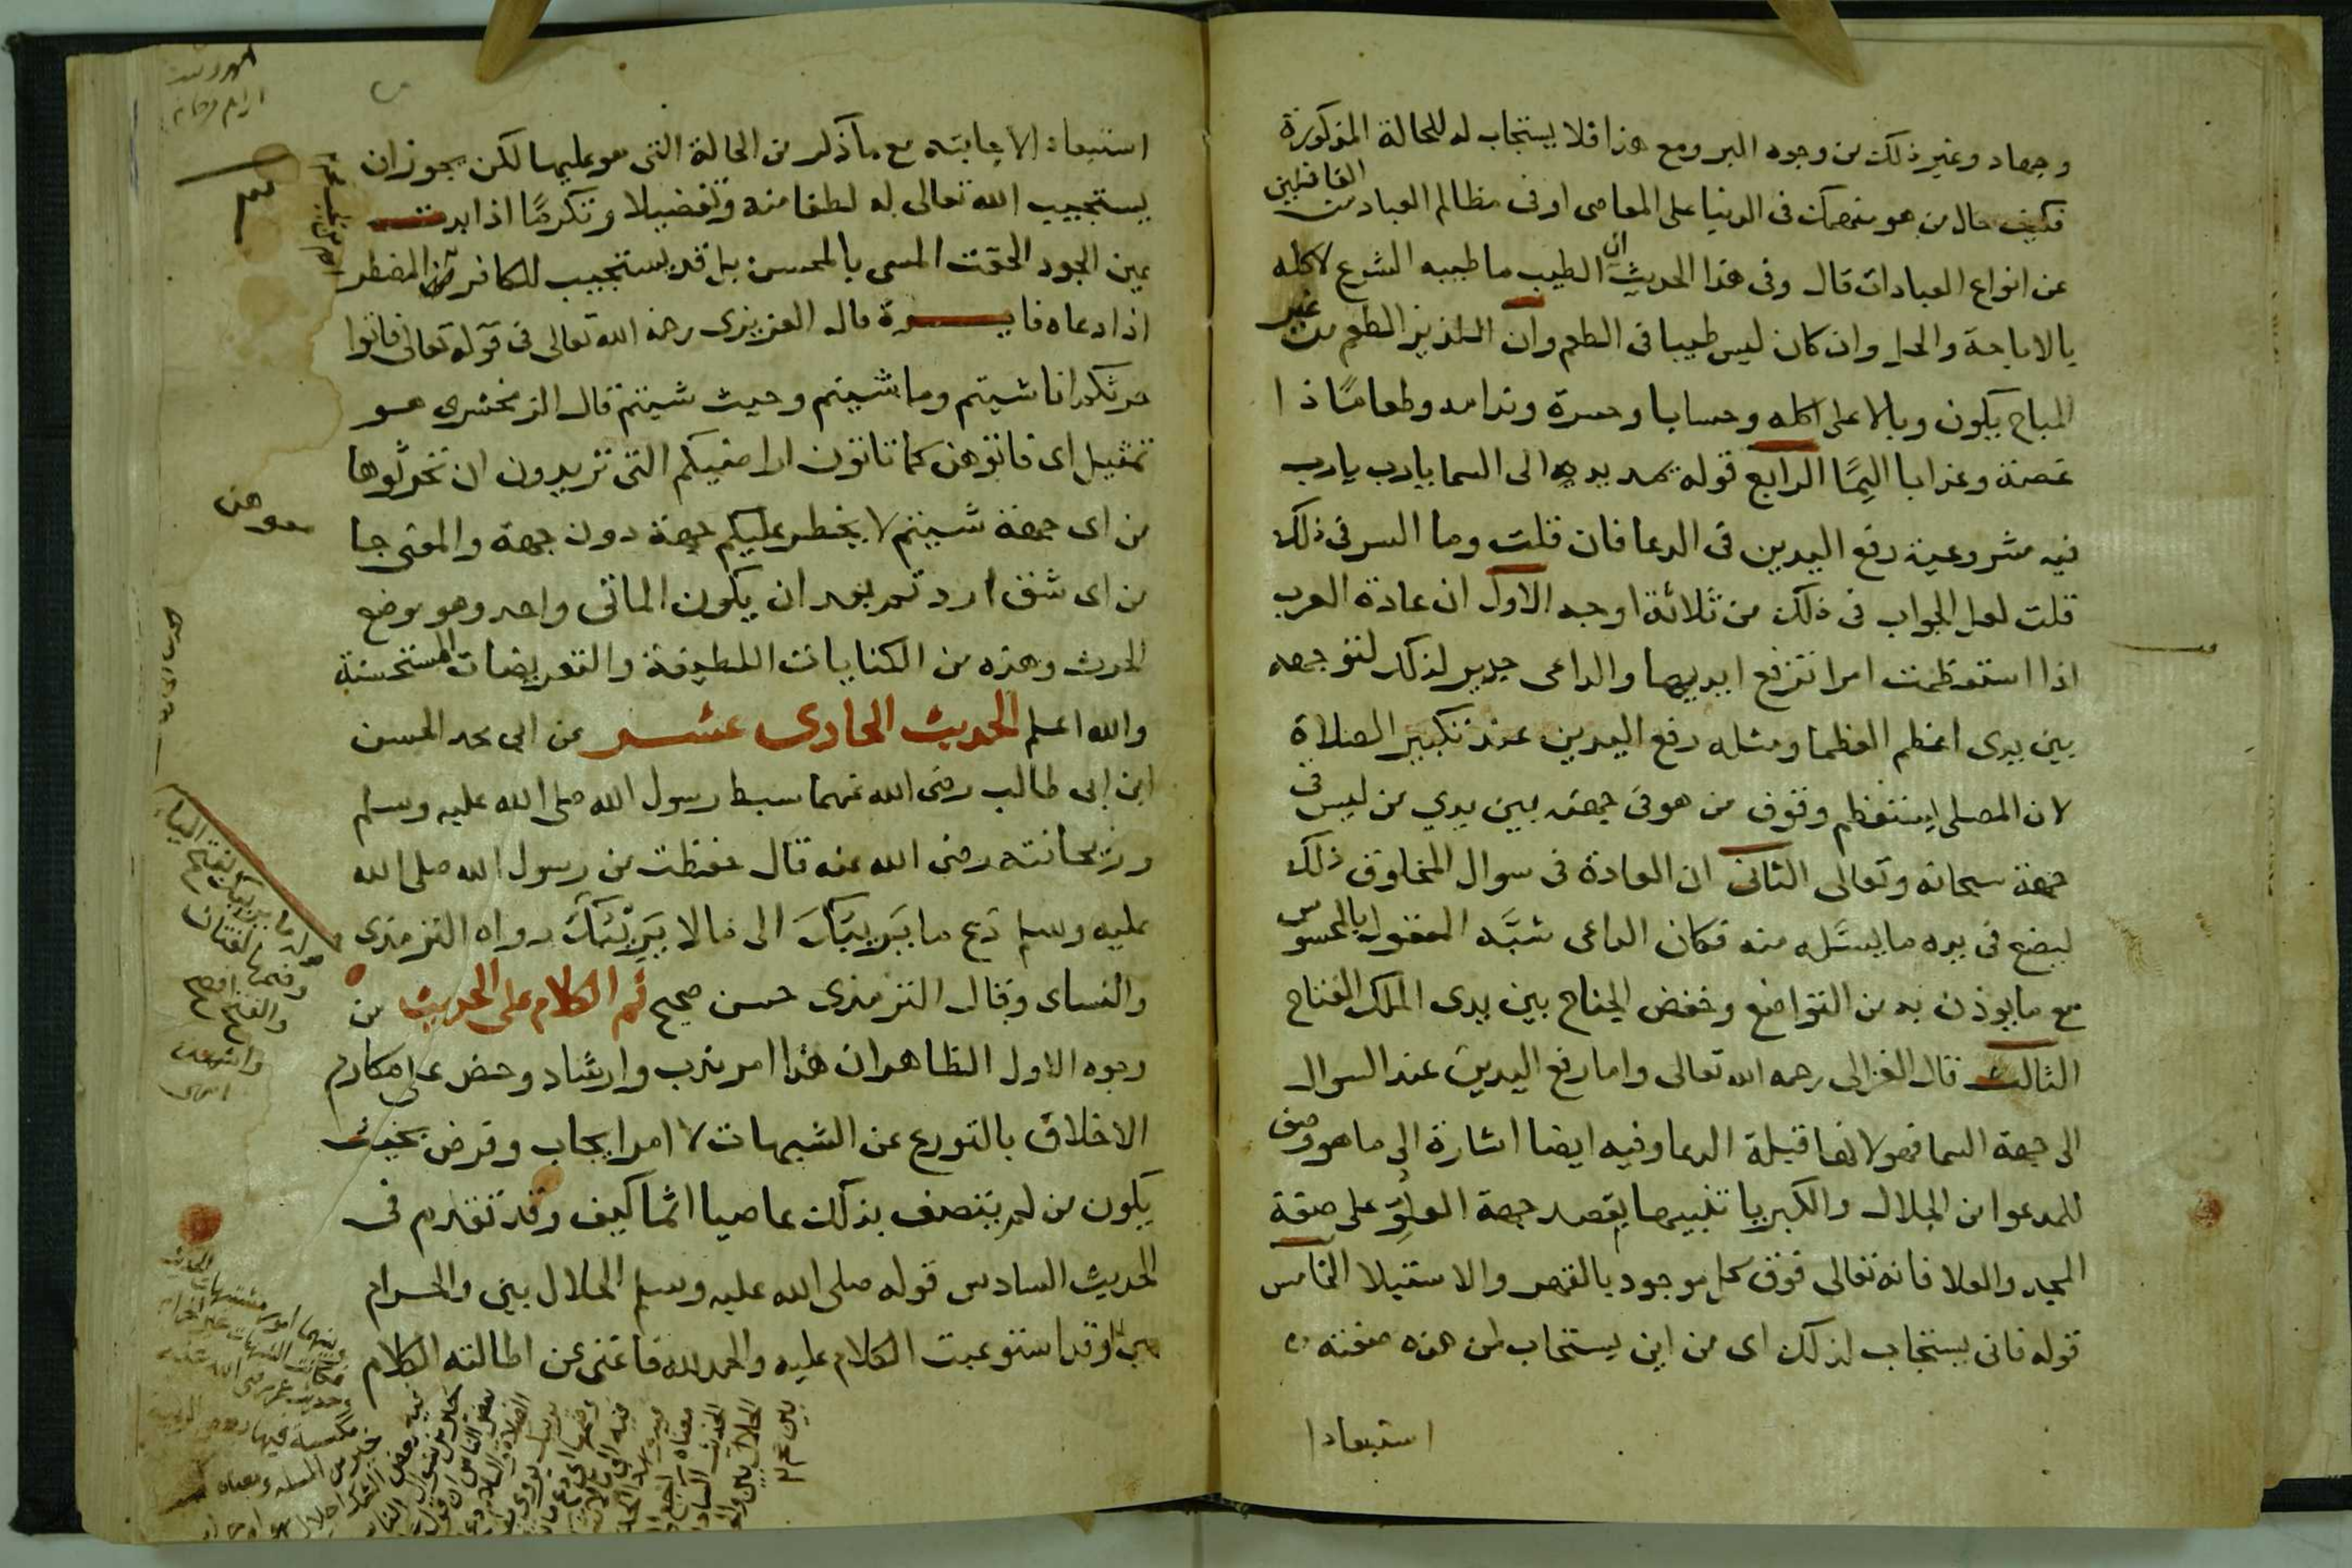 وجهاد وغير ذلك من وجوه البر ومع هذا فلا يستجاب له للحالة المذكورة
فكيف حال من هو منهمك فى الدنيا على المعاصى او فى مظالم العباد من الغافلين
عن انواع العبادات قال وفى هذا الحديث ان الطيب ما طيبه الشرع لاكله
بالاباحة والحل وان كان ليس طيبا فى الطعم وان اللذيذ الطعم من غير
المباح يكون وبالا على اكله وحسابا وحسرة وندامه وطعامًا ذا
غصة وعذابا اليمًا الرابع قوله يمد يديه الى السما يارب يارب
فيه مشروعية رفع اليدين فى الدعا فان قلت وما السر فى ذلك
قلت لعل الجواب فى ذلك من ثلاثة اوجه الاول ان عادة العرب
اذا استعظمت امرا ترفع ايديها والداعى جدير لذلك لتوجهه
بين يدى اعظم العظما ومثله رفع اليدين عند تكبير الصلاة
لان المصلى يستعظم وقوف من هو فى جهة بين يدي من ليس فى
جهة سبحانه وتعالى الثانى ان العادة فى سوال المخلوق ذلك
ليضع فى يده ما يسئله منه فكان الداعى شبَّه المعقول بالمحسوس
مع ما يوذن به من التواضع وخفض الجناح بين يدى الملك الفتاح
الثالث قال الغزالى رحمه الله تعالى واما رفع اليدين عند السوال
الى جهة السما فهو لانها قبلة الدعا وفيه ايضا اشارة الى ما هو وصف
للمدعو من الجلال والكبريا تنبيها بقصد جهة العلوِّ على صفة
المجد والعلا فانه تعالى فوق كل موجود بالقهر والاستيلا الخامس
قوله فانى يستجاب لذلك اى من اين يستجاب لمن هذه صفته
استبعادا
استبعادا لاجابته مع ما ذكر من الحالة التى هو عليها لكن يجوز ان
يستجيب الله تعالى له لطفا منه وتفضيلا وتكرمًا اذا بدت
عين الجود الحقت المسى بالمحسن بل قد يستجيب للكافر المضطر
اذا دعاه فايدة قال العزيزى رحمه الله تعالى فى قوله تعالى فاتوا
حرثكم انا شيتم وما شيتم وحيث شيتم قال الزمخشرى هو
تمثيل اى فاتوهن كما تاتون اراضيكم التى تريدون ان تحرثوها
من اى جهة شيتم لا يخطر عليكم جهة دون جهة والمعنى جا
من اى شق اردتم بعد ان يكون الماتى واحد وهو موضع
الحرث وهذه من الكنايات اللطيفة والتعريضات المستحسنة
والله اعلم الحديث الحادى عشر عن ابى محد الحسن
ابن ابى طالب رضى الله عنهما سبط رسول الله صلى الله عليه وسلم
وريحانته رضى الله عنه قال حفظت من رسول الله صلى الله
عليه وسلم دَع ما يَريبَكَ الى مالا يَريْبَكَ رواه الترمذى
والنساى وقال الترمذى حسن صحيح ثم الكلام على الحديث من
وجوه الاول الظاهر ان هذا امر ندب وارشاد وحض على مكارم
الاخلاق بالتورع عن الشبهات لا امر ايجاب وفرض بحيث
يكون من لم يتصف بذلك عاصيا اثما كيف وقد تقدم فى
الحديث السادس قوله صلى الله عليه وسلم الحلال بين والحرام
بين وقد استوعبت الكلام عليه والحمد لله فاغنى عن اطالته الكلام
قوله ما يريبك بفتح الياء
وضمها لغتان
والفتح افصح
واشهر